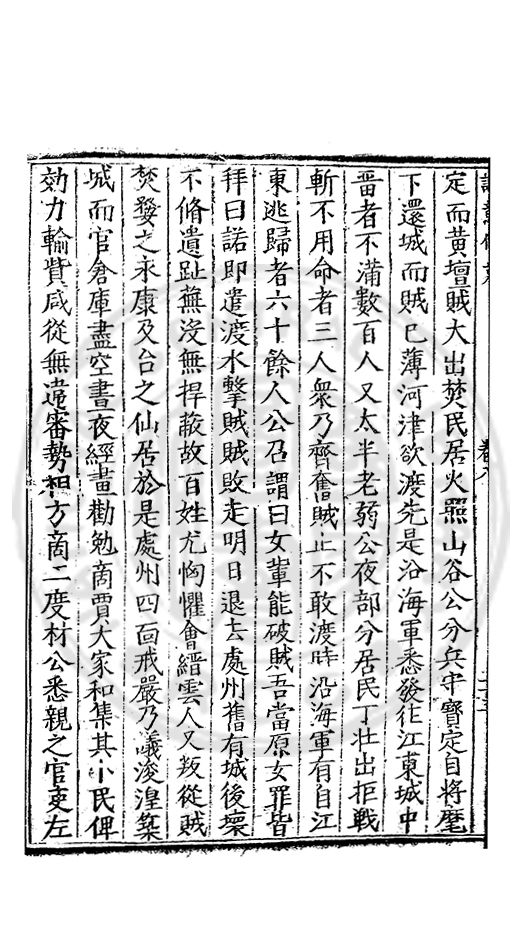 定而黄壇賊大出焚民居火照山谷公分兵守寳定自將麾
下還城而賊已薄河津欲渡先是沿海軍悉發徃江東城中
畱者不滿數百人又太半老弱公夜部分居民丁壮出拒戰
斬不用命者三人衆乃齊奮賊止不敢渡時沿海軍有自江
東逃歸者六十餘人公召謂曰女輩能破賊吾當原女罪皆
拜曰諾即遣渡水擊賊賊敗走明日退去處州舊有城後壞
不脩遺趾蕪沒無捍蔽故百姓尤恟懼會縉雲人又叛從賊
焚婺之永康及台之仙居於是處州四靣戒嚴乃議浚湟築
城而官倉庫盡空晝夜經畫勸勉商賈大家和集其小民俾
効力輸貲咸從無違審勢相方啇工度材公悉親之官吏左
卷八